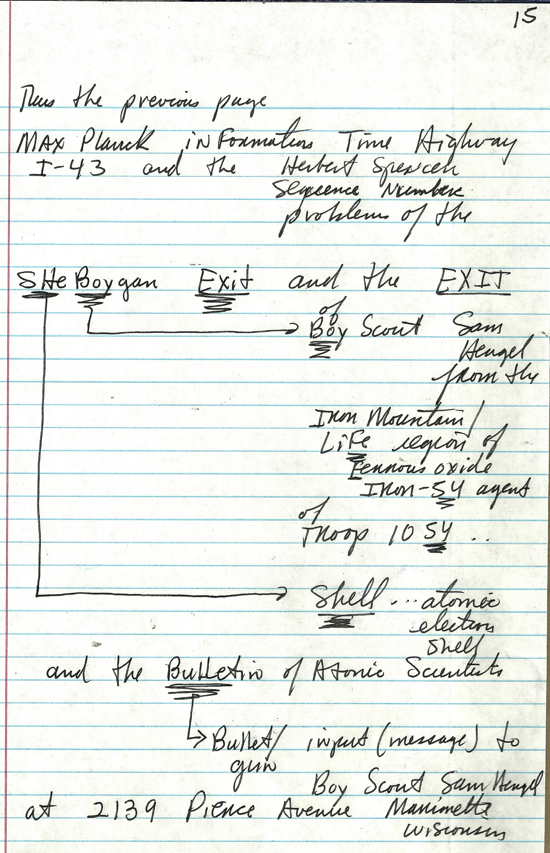 15
Thus the previous page
MAX Planck inFormation Time Highway
I-43 and the Herbert Spencer
Sequence Number
problems of the
SHeBoygan Exit and the EXIT
of
Boy Scout Sam
Hengel
from the
Iron Mountain/
LiFe region of
Ferrous oxide
Iron-54 agent
of
Troop 1054 ..
Shell ... atomic
electron
shelf
and the Bulletin of Atomic Scientists
Bullet/ input (message) to
gun
Boy Scout Sam Hengel
at 2139 Pierce Avenue Marinette
Wisconsin